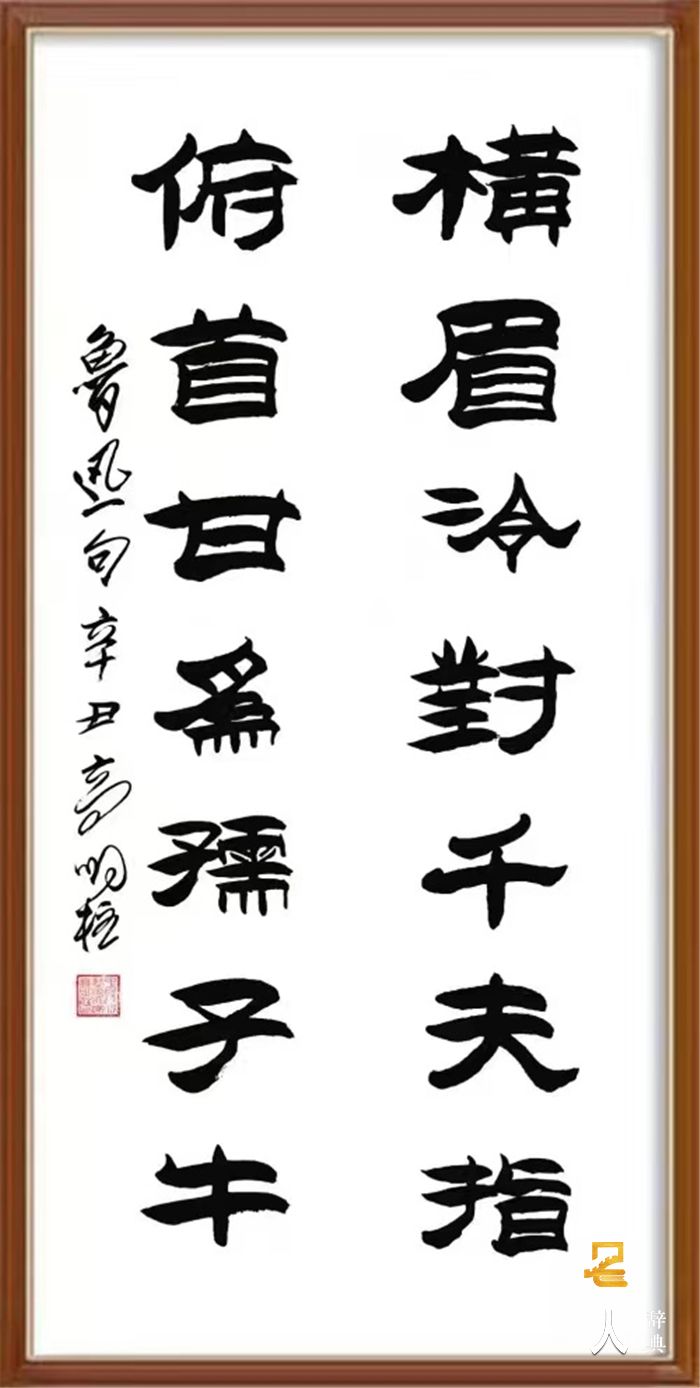 橫眉泠對千夫指
俯首甘為孺子牛
魯迅句辛丑高明柱
人
辞典